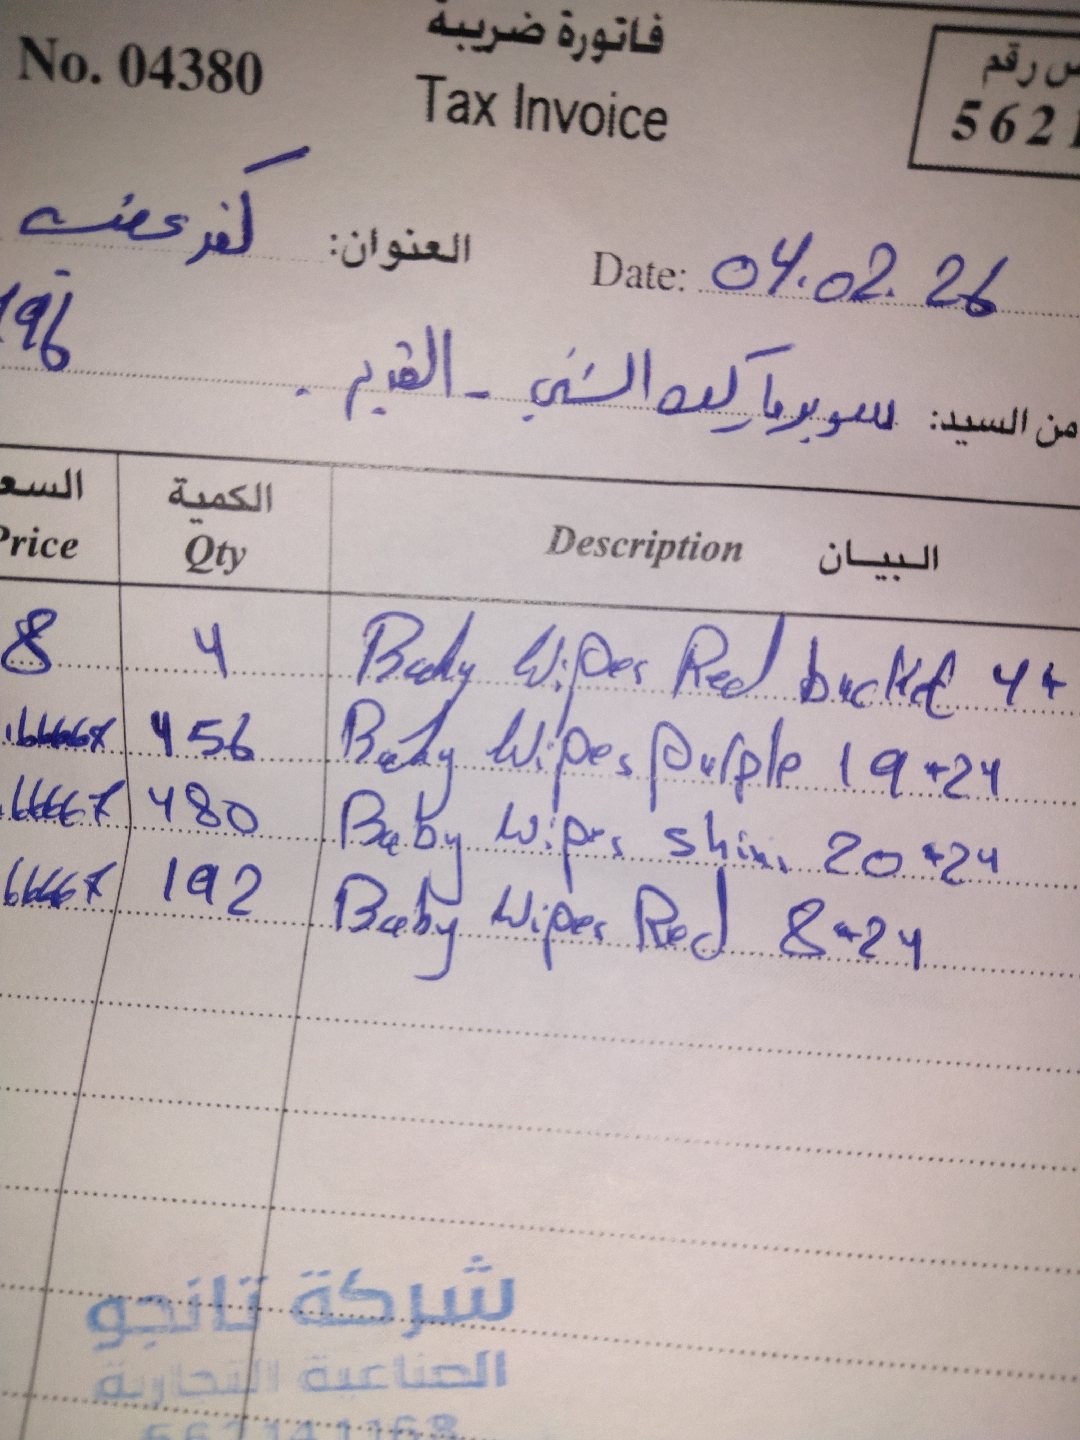 فاتورة ضريبة
No. 04380
Tax Invoice
س رقم
5621
Date: 04.02.26
العنوان: كفر عقب
196
من السيد: سوبرماركت السني - القديم .
البيان Description
الكمية Qty
السع Price
Baby Wipes Red bucket 4* 4 8
Baby Wipes purple 19*24 456 .166667
Baby Wipes shini 20*24 480 .166667
Baby Wipes Red 8*24 192 66667
شركة تانجو
الصناعية التجارية